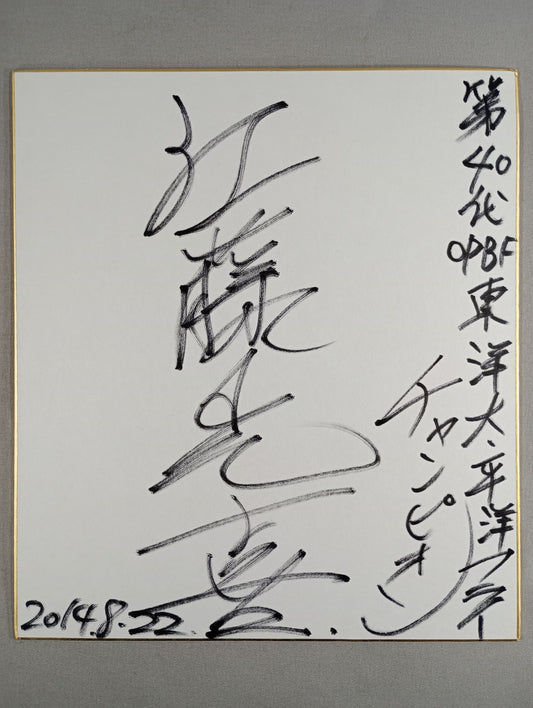 第40代OPBF東洋太平洋フライ
チャンピオン
江藤光喜
2014.8.22.